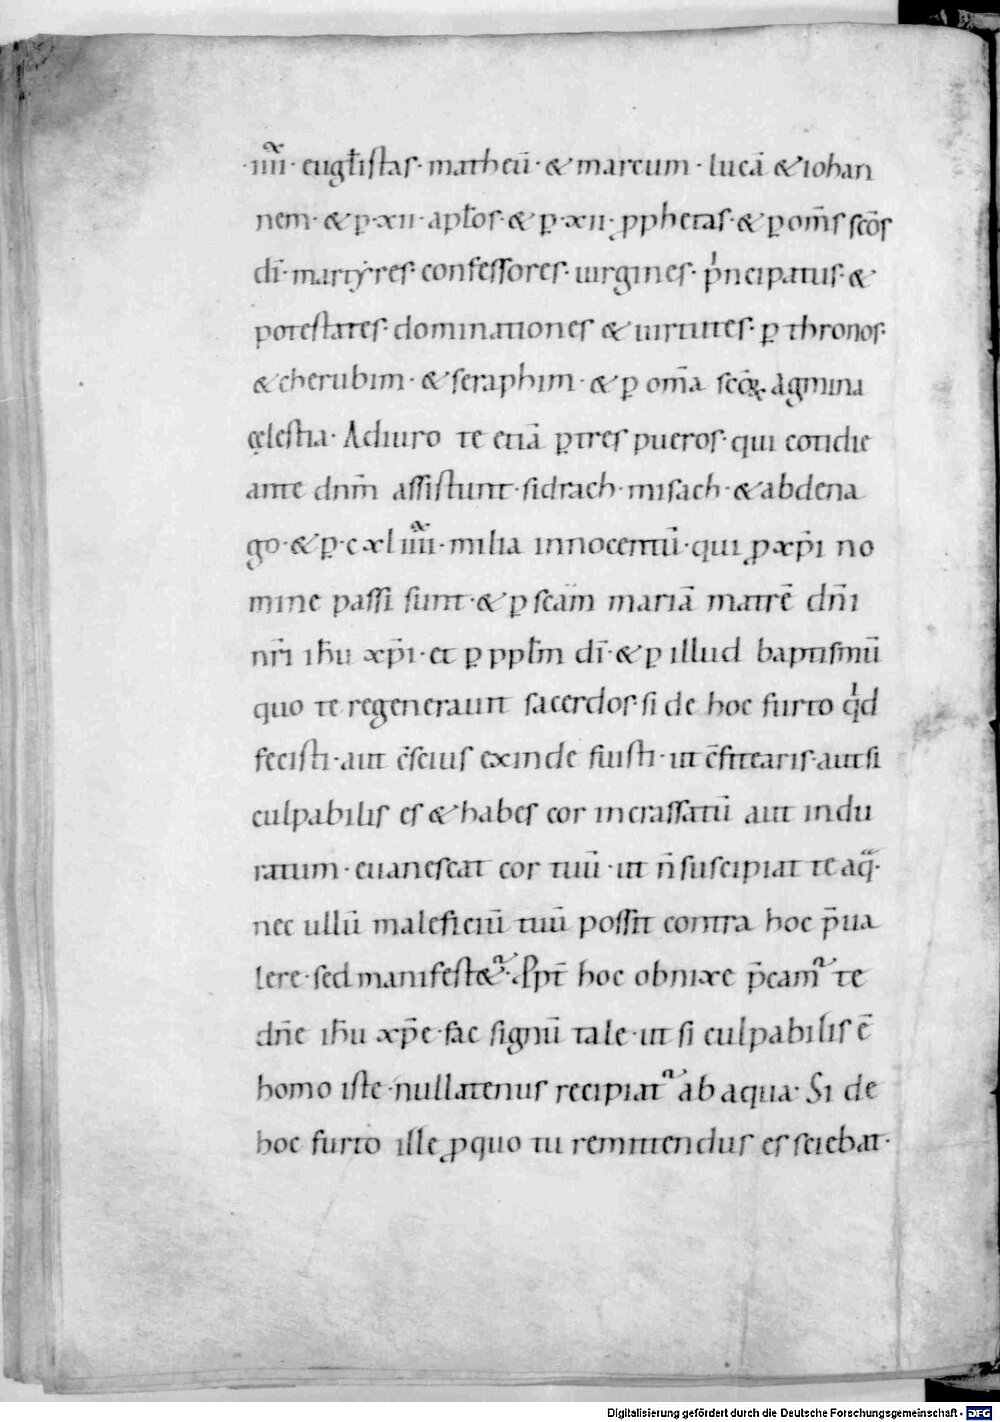 ·iiii· eugłistas· matheū· & marcum· lucā &iohan
nem· & ꝑ·xii· apłos· & ꝑ·xii· ꝓphetas· & ꝑ om̄s sc̄os
dī· martyres· confessores· uirgines· pͥncipatus· &
potestates· dominationes & uirtutes· ꝑ thronos·
& cherubim· & seraphim· & ꝑ om̄a sc̄oꝝ· agmina
cęlestia· Adiuro te etiā ꝑ tres pueros· qui cotidie
ante dnm̄ assistunt· sidrach· misach· & abdena
go· & ꝑ·cxliiii· milia innocentū· qui ꝓ xp̄i no
mine passi sunt· & ꝑ scām mariā matrē dn̄i
nr̄i ih̄u xp̄i· et ꝑ ppłm dī· & ꝑ illud baptismū
quo te regenerauit sacerdos· si de hoc furto qͥd
fecisti· aut c̄scius exinde fuisti· ut c̄fitearis· aut si
culpabilis es & habes cor incrassatū aut indu
ratum· euanescat cor tuū· ut n̄ suscipiat te aq̄·
nec ullū maleficiū tuū possit contra hoc p̄ua
lere· sed manifest&ur· Ppt̄ hoc obnixe p̄camur te
dn̄e ih̄u xp̄e· fac signū tale· ut si culpabilis ē
homo iste· nullatenus recipiatur ab aqua· Si de
hoc furto ille ꝓ quo tu remittendus es sciebat·
Digitalisierung gefördert durch die Deutsche Forschungsgemeinschaft - DFG